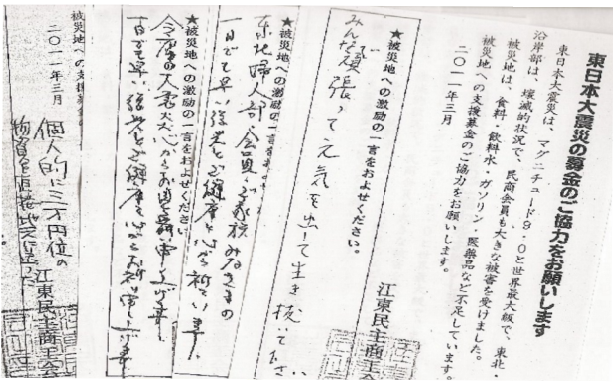 東日本大震災の募金のご協力をお願いします
東日本大震災は、マグニチュード9・0と世界最大級で、東北・
沿岸部は、壊滅的状況で、民商会員も大きな被害を受けました。
被災地は、食料・飲料水・ガソリン・医薬品など不足しています。
被災地への支援募金のご協力をお願いします。
二〇一一年三月
江東民主商工会
★被災地への激励の一言をおよせください。
みんな頑張って元気を出して生き抜いて
★被災地への激励の一言を
東北婦人部会員ご家族みなさまの
一日でも早い復興とご健康を心から祈っています。
★被災地への激励の一言をおよせください。
今度の大震災心からお見舞い申し上げます
一日でも早い復興とご健康を心からお祈り申し上げます
被災地への支援募金の
二〇一一年三月
江東民主商工会
個人的に三万円位の
物資を直接